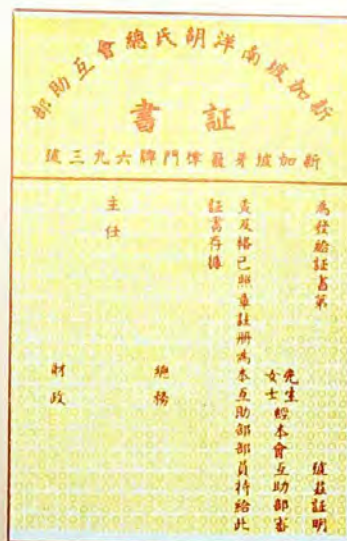 新加坡南洋胡氏總會互助部
証書
新加坡門牌六九三號
為發給証書第 號茲証明
先生
女士 經本會互助部審
查及格已照章註冊為本互助部部員特給此
証書存據
總務
主任
財政